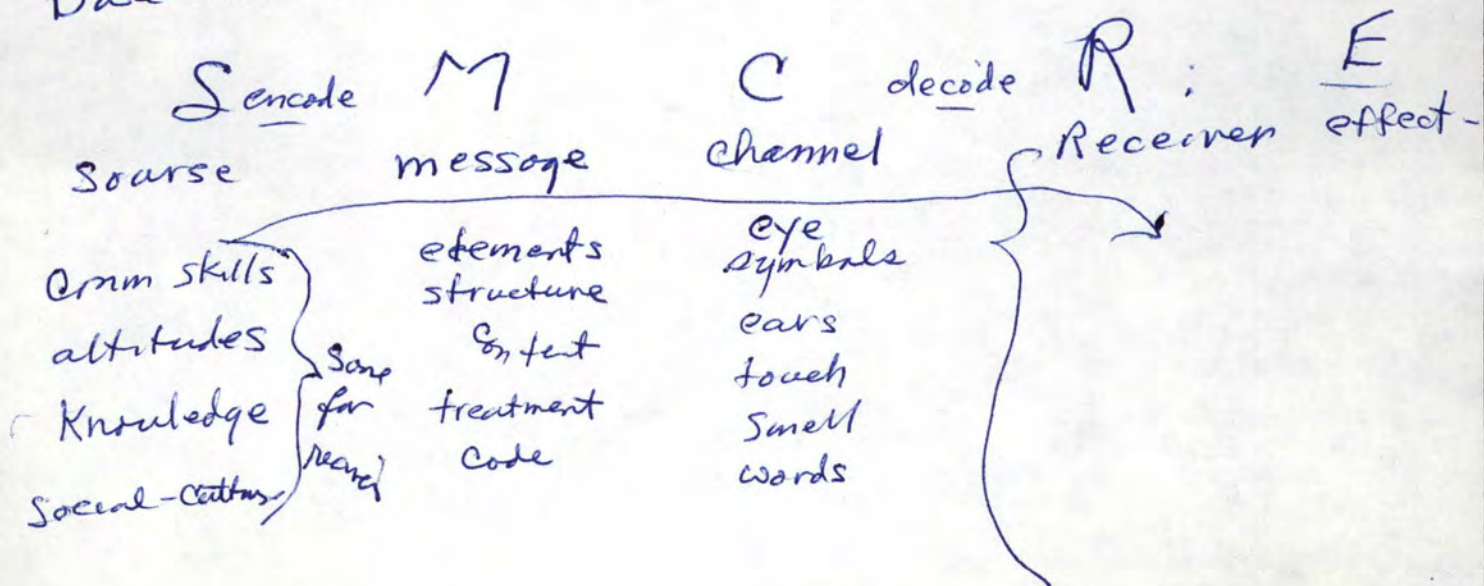 S encode M C decode R : E
Sourse message channel Receiver effect-
Comm skills
altitudes
Knowledge
Social-
Same
for
elements
structure
Content
treatment
Code
eye
symbols
ears
touch
smell
words